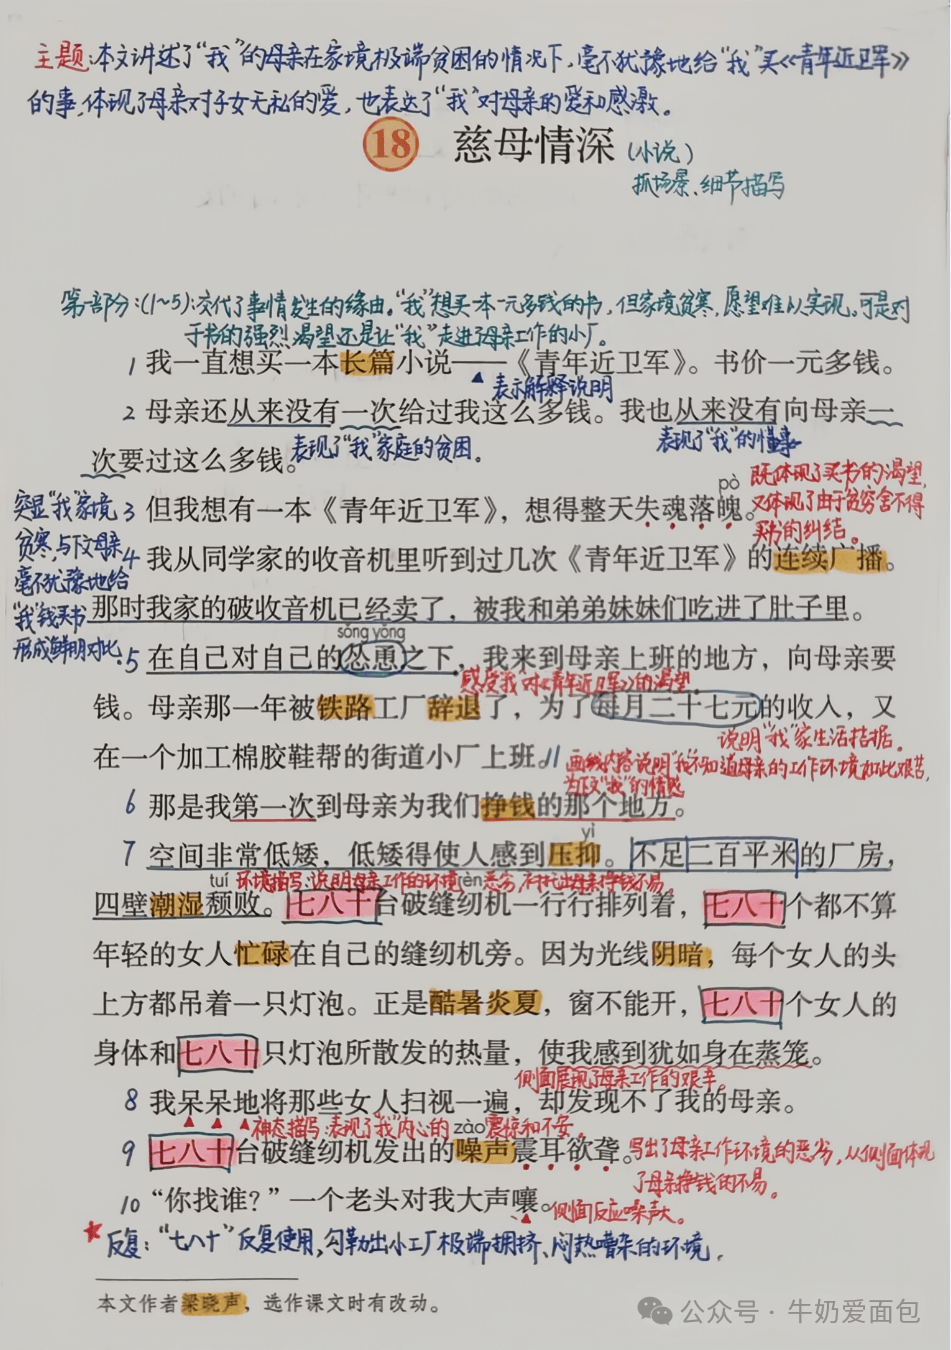 主题:本文讲述了“我”的母亲在家境极端贫困的情况下,毫不犹豫地给“我”买《青年近卫军》
的事,体现了母亲对子女无私的爱,也表达了“我”对母亲的爱和感激。
18 慈母情深 (小说)
抓场景、细节描写
第一部分:(1~5):交代了事情发生的缘由。“我”想买一本一元多钱的书,但家境贫寒,愿望难以实现。可是对
于书的强烈渴望还是让“我”走进了母亲工作的小厂。
1 我一直想买一本长篇小说——《青年近卫军》。书价一元多钱。
表示解释说明
2 母亲还从来没有一次给过我这么多钱。我也从来没有向母亲一
次要过这么多钱。
表现了“我”家庭的贫困。
表现了“我”的懂事
pò
既体现了买书的渴望,
又体现了由于贫穷舍不得
买书的纠结。
突显“我”家境
贫寒,与下文母亲
毫不犹豫地给
“我”钱买书
形成鲜明对比.
3 但我想有一本《青年近卫军》,想得整天失魂落魄。
4 我从同学家的收音机里听到过几次《青年近卫军》的连续广播。
那时我家的破收音机已经卖了,被我和弟弟妹妹们吃进了肚子里。
sǒng yǒng
5 在自己对自己的怂恿之下,我来到母亲上班的地方,向母亲要
感受“我”对《青年近卫军》的渴望.
钱。母亲那一年被铁路工厂辞退了,为了每月二十七元的收入,又
说明“我”家生活拮据。
在一个加工棉胶鞋帮的街道小厂上班。
画线内容说明“我”不知道母亲的工作环境如此艰苦,
为下文“我”的情感
6 那是我第一次到母亲为我们挣钱的那个地方。
yì
7 空间非常低矮,低矮得使人感到压抑。不足二百平米的厂房,
tuí 环境描写:说明母亲工作的环境 rèn 恶劣,衬托出母亲挣钱不易。
四壁潮湿颓败。七八十台破缝纫机一行行排列着,七八十个都不算
年轻的女人忙碌在自己的缝纫机旁。因为光线阴暗,每个女人的头
上方都吊着一只灯泡。正是酷暑炎夏,窗不能开,七八十个女人的
身体和七八十只灯泡所散发的热量,使我感到犹如身在蒸笼。
侧面展现了母亲工作的艰辛。
8 我呆呆地将那些女人扫视一遍,却发现不了我的母亲。
神态描写:表现了“我”内心的 zào 震惊和不安。
9 七八十台破缝纫机发出的噪声震耳欲聋。
写出了母亲工作环境的恶劣,从侧面体现
了母亲挣钱的不易。
10 “你找谁?”一个老头对我大声嚷。
侧面反应噪声大。
反复:“七八十”反复使用,勾勒出小工厂极端拥挤、闷热嘈杂的环境.
本文作者梁晓声,选作课文时有改动。
公众号·牛奶爱面包